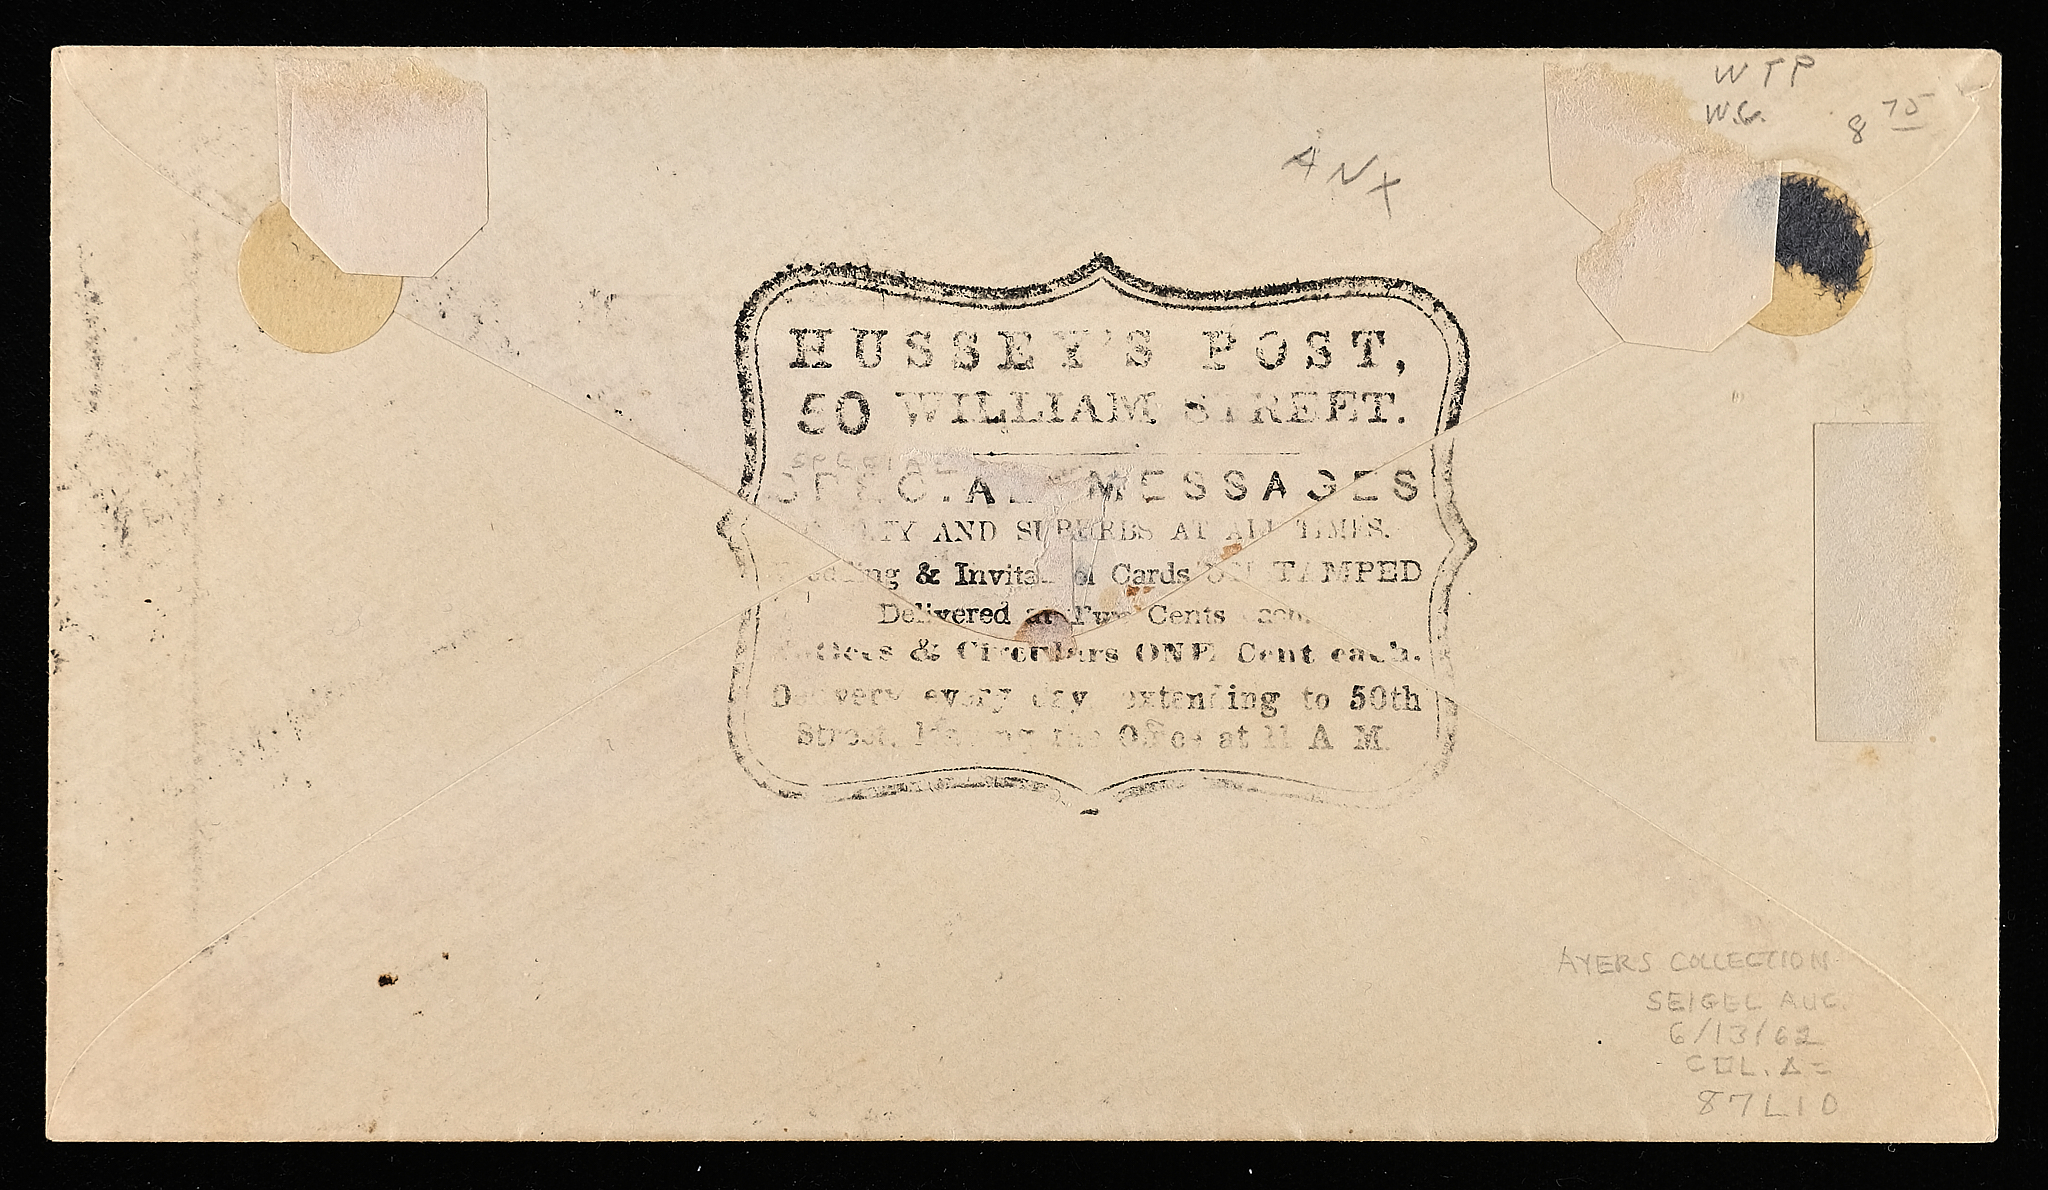 WTP
W.G.
8 75
ANX
HUSSEY'S POST,
50 WILLIAM STREET.
SPECIAL
SPECIAL MESSAGES
AND SUBURBS AT ALL TIMES.
Wedding & Invita Cards UNSTAMPED
Delivered at Two Cents each.
Notices & Circulars ONE Cent each.
Delivery every day, extending to 50th
Street, leaving the Office at 11 A M.
AYERS COLLECTION
SEIGEL AUC.
6/13/62
87L10